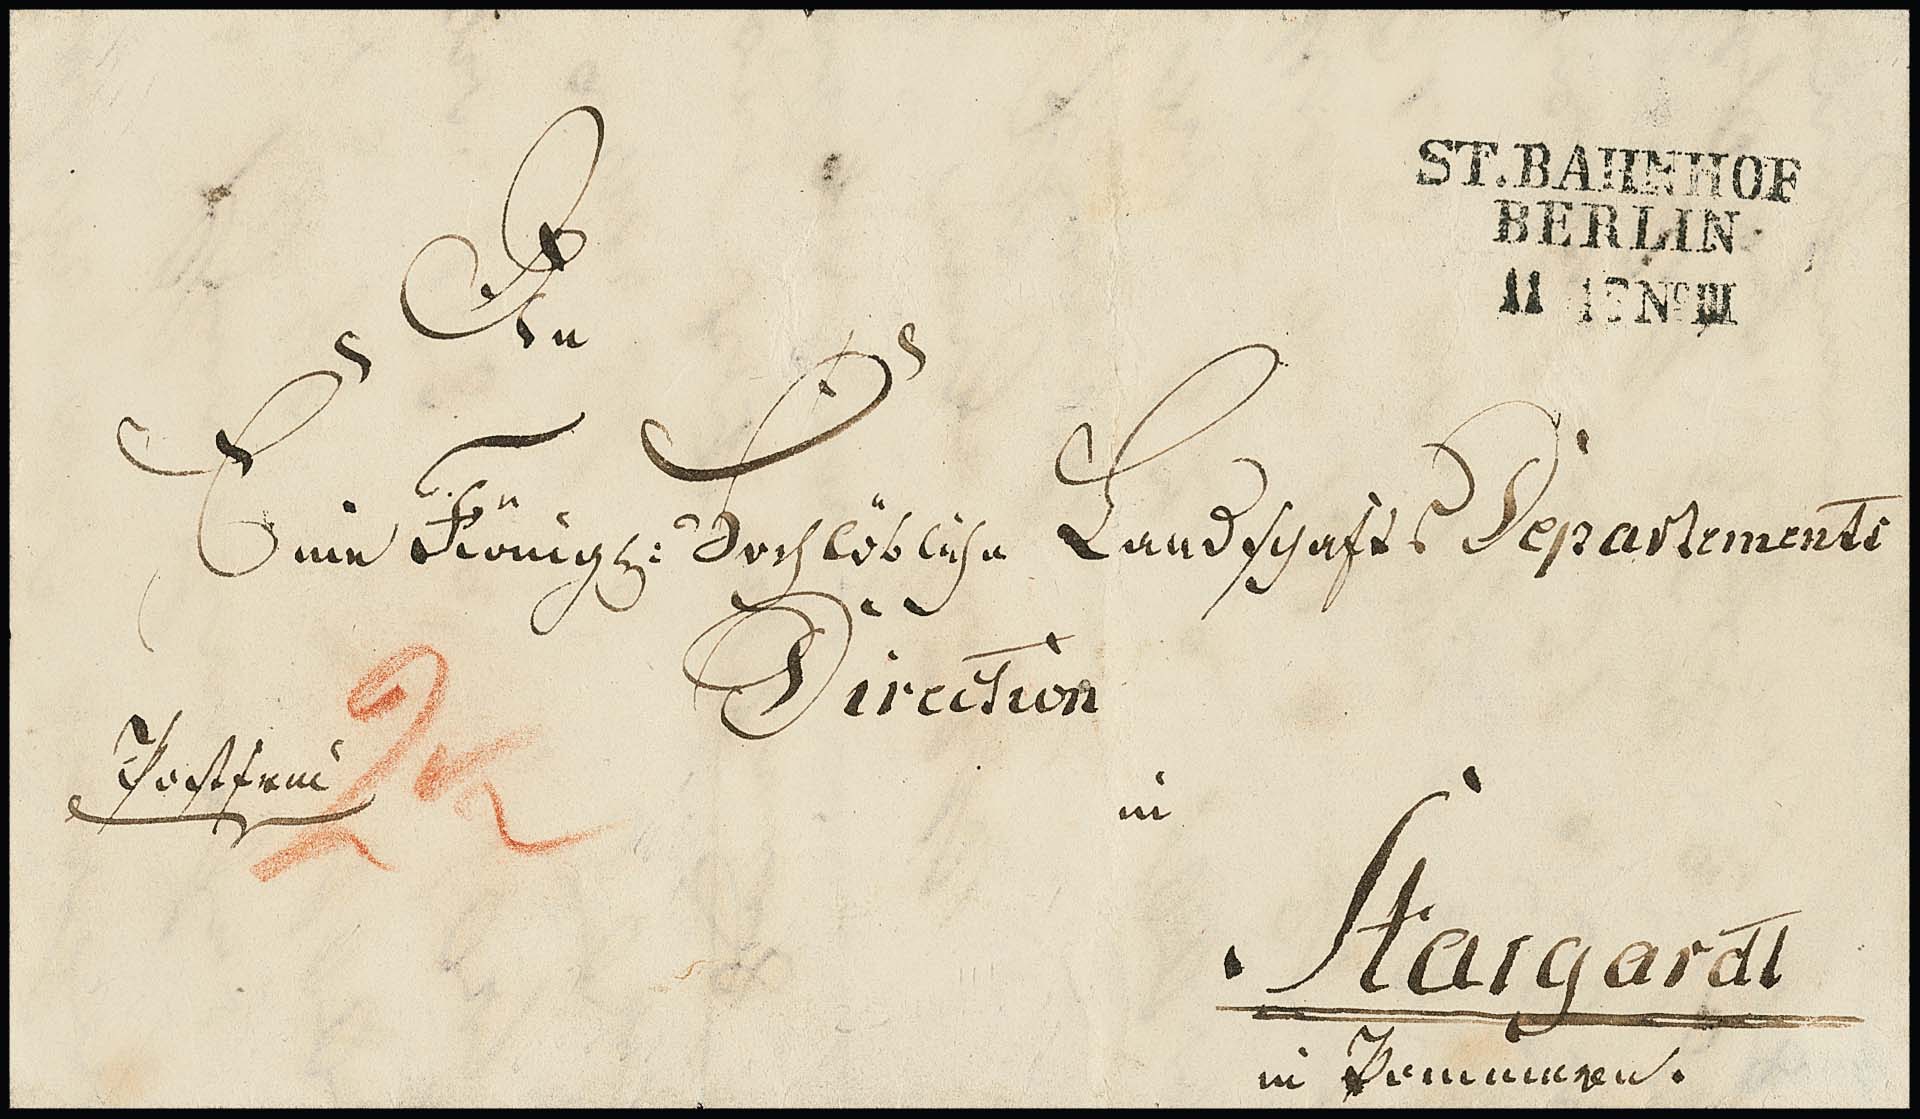 ST. BAHNHOF
BERLIN
11 Nº III
An
Eine Königl: Hochlöbliche Landschafts Departements
Direction
Postfrei
in
Stargardt
in Pommern.